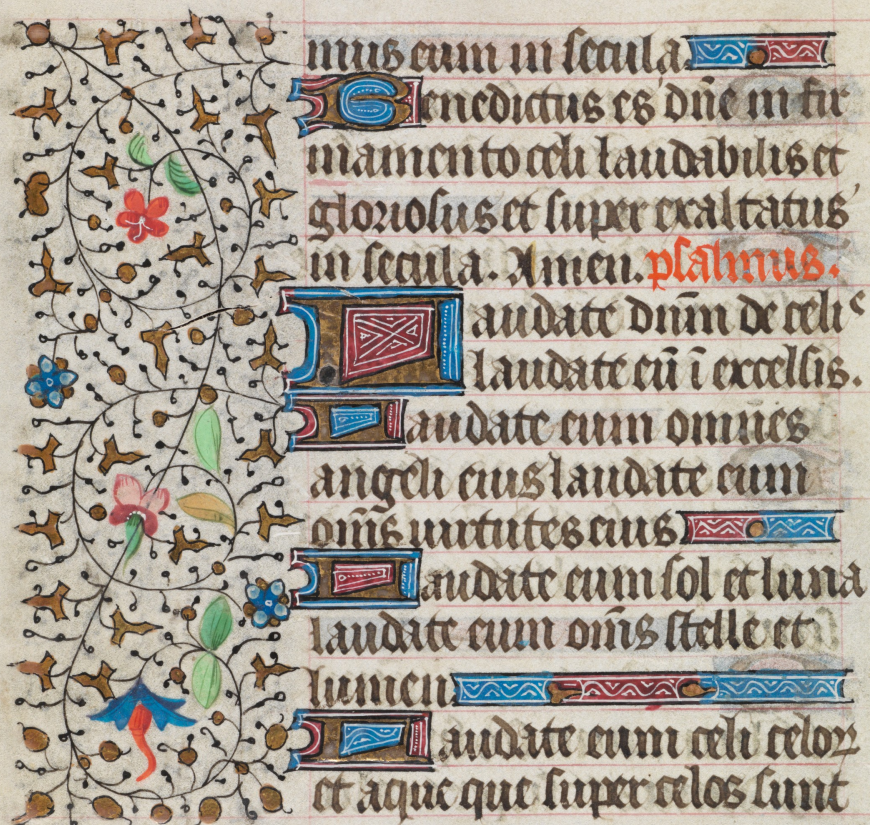 mus eum in secula
Benedictus es dn̄e in fir
mamento celi laudabilis et
gloriosus et super exaltatus
in secula. Amen. psalmus.
Laudate dnm̄ de celis
laudate eū ī excelsis.
Laudate eum omnes
angeli eius laudate eum
om̄s virtutes eius
Laudate eum sol et luna
laudate eum om̄s stelle et
lumen
Laudate eum celi celoꝝ
et aque que super celos sunt